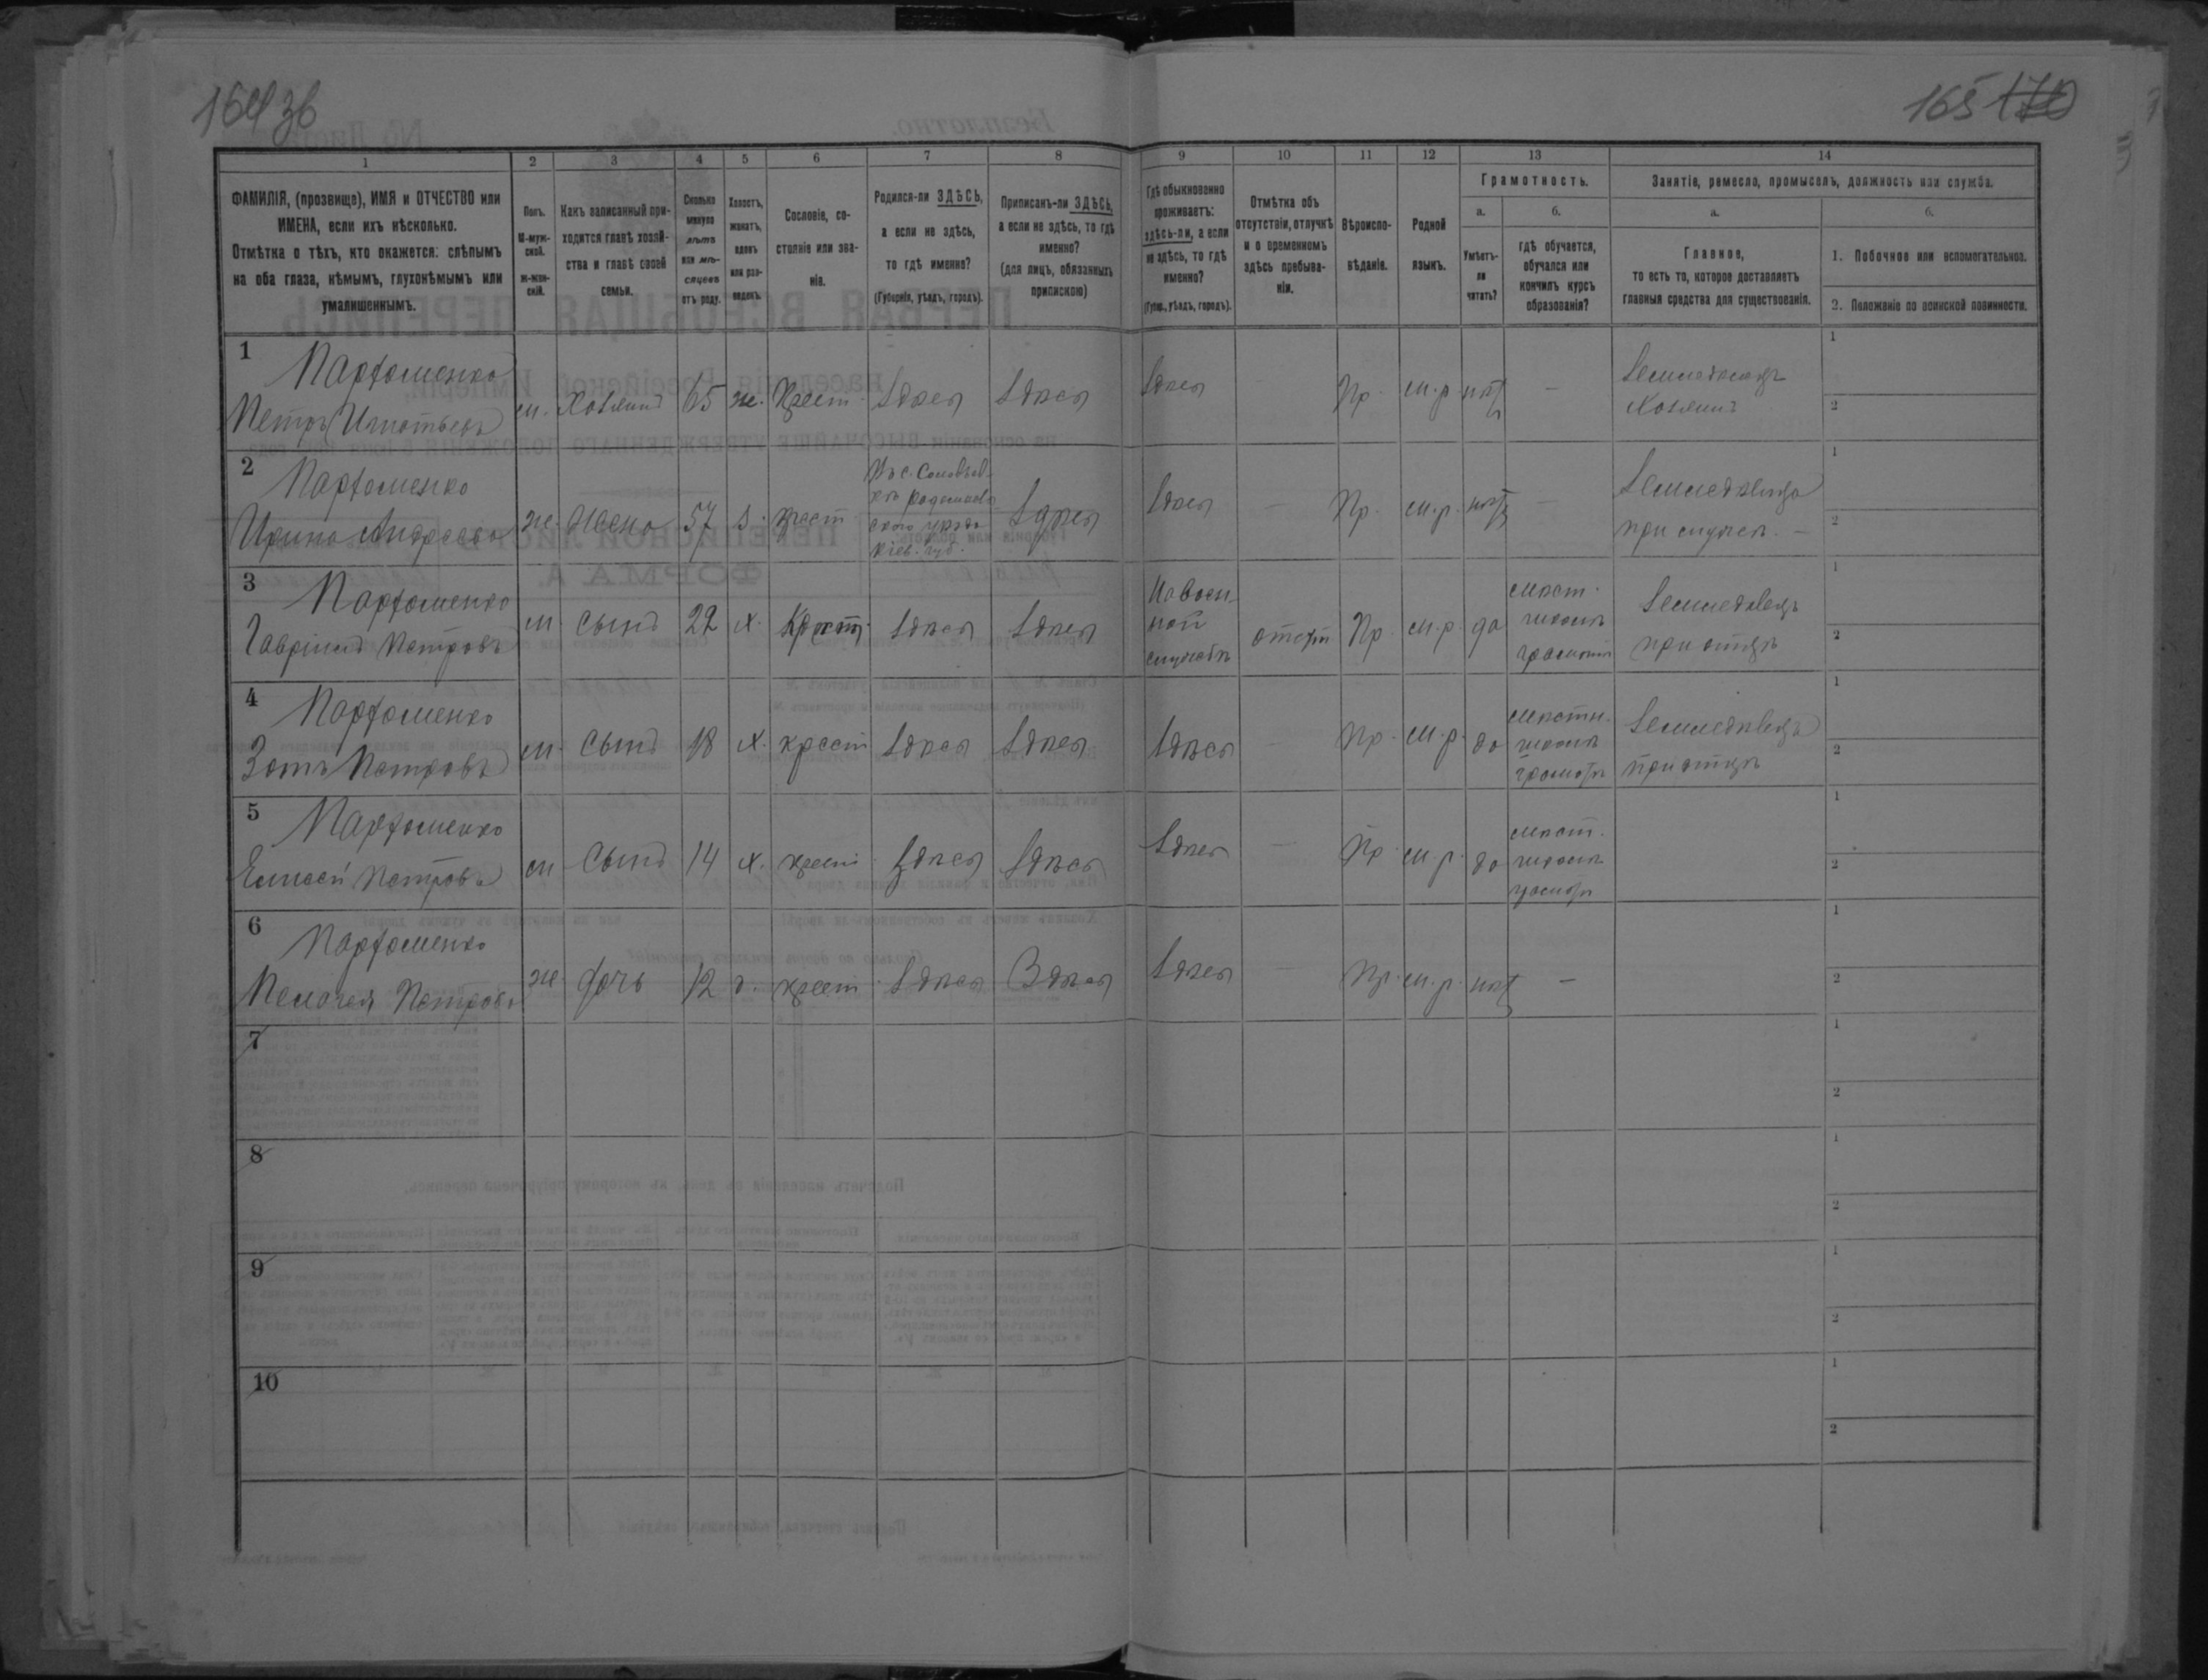 164 зв
165 170
1
2
3
4
5
6
7
8
9
10
11
12
13
14
ФАМИЛІЯ, (прозвище), ИМЯ и ОТЧЕСТВО или
ИМЕНА, если ихъ нѣсколько.
Отмѣтка о тѣхъ, кто окажется: слѣпымъ
на оба глаза, нѣмымъ, глухонѣмымъ или
умалишеннымъ.
Полъ.
М-муж-
ской.
ж-жен-
скій.
Какъ записанный при-
ходится главѣ хозяй-
ства и главѣ своей
семьи.
Сколько
минуло
лѣтъ
или мѣ-
сяцевъ
отъ роду.
Холостъ,
женатъ,
вдовъ
или раз-
веденъ.
Сословіе, со-
стояніе или зва-
ніе.
Родился-ли ЗДѢСЬ,
а если не здѣсь,
то гдѣ именно?
(Губернія, уѣздъ, городъ).
Приписанъ-ли ЗДѢСЬ,
а если не здѣсь, то гдѣ
именно?
(для лицъ, обязанныхъ
припискою)
Гдѣ обыкновенно
проживаетъ:
здѣсь-ли, а если
не здѣсь, то гдѣ
именно?
(Губер., уѣздъ, городъ).
Отмѣтка объ
отсутствіи, отлучкѣ
и о временномъ
здѣсь пребыва-
ніи.
Вѣроиспо-
вѣданіе.
Родной
языкъ.
Грамотность.
а.
Умѣетъ-
ли
читать?
б.
гдѣ обучается,
обучался или
кончилъ курсъ
образованія?
Занятіе, ремесло, промыселъ, должность или служба.
а.
Главное,
то есть то, которое доставляетъ
главныя средства для существованія.
б.
1. Побочное или вспомогательное.
2. Положеніе по воинской повинности.
1
Парфоменко
Петръ Игнатьевъ
м.
Хозяинъ
65
же.
Крест.
Здѣсь
Здѣсь
Здѣсь
-
Пр.
м.р.
нѣтъ
-
Земледелецъ
Хозяинъ
1
2
2
Парфоменко
Ирина Андреева
же.
Жена
57
з.
крест
Въ с. Соловьев-
кѣ Радомысль-
скаго уѣзда
Кіев. губ.
Здѣсь
Здѣсь
-
Пр.
м.р.
нѣтъ
-
Земледѣлица
при мужѣ. -
1
2
3
Парфоменко
Гавріилъ Петровъ
м.
Сынъ
22
х.
Крест.
Здѣсь
Здѣсь
На воен-
ной
службѣ
отсут
Пр.
м.р.
да
мѣст.
школѣ
грамоты
Земледѣлецъ
при отцѣ
1
2
4
Парфоменко
Зотъ Петровъ
м.
Сынъ
18
х.
крест
Здѣсь
Здѣсь
Здѣсь
-
Пр.
м.р.
да
мѣстн.
школѣ
грамоты
Земледѣлецъ
при отцѣ
1
2
5
Парфоменко
Елисей Петровъ
м
Сынъ
14
х.
крест
Здѣсь
Здѣсь
Здѣсь
-
Пр.
м.р.
да
мѣст.
школѣ
грамоты
1
2
6
Парфоменко
Пелагея Петрова
же.
дочь
12
д.
крест
Здѣсь
Здѣсь
Здѣсь
-
Пр.
м.р.
нѣтъ
-
1
2
7
1
2
8
1
2
9
1
2
10
1
2